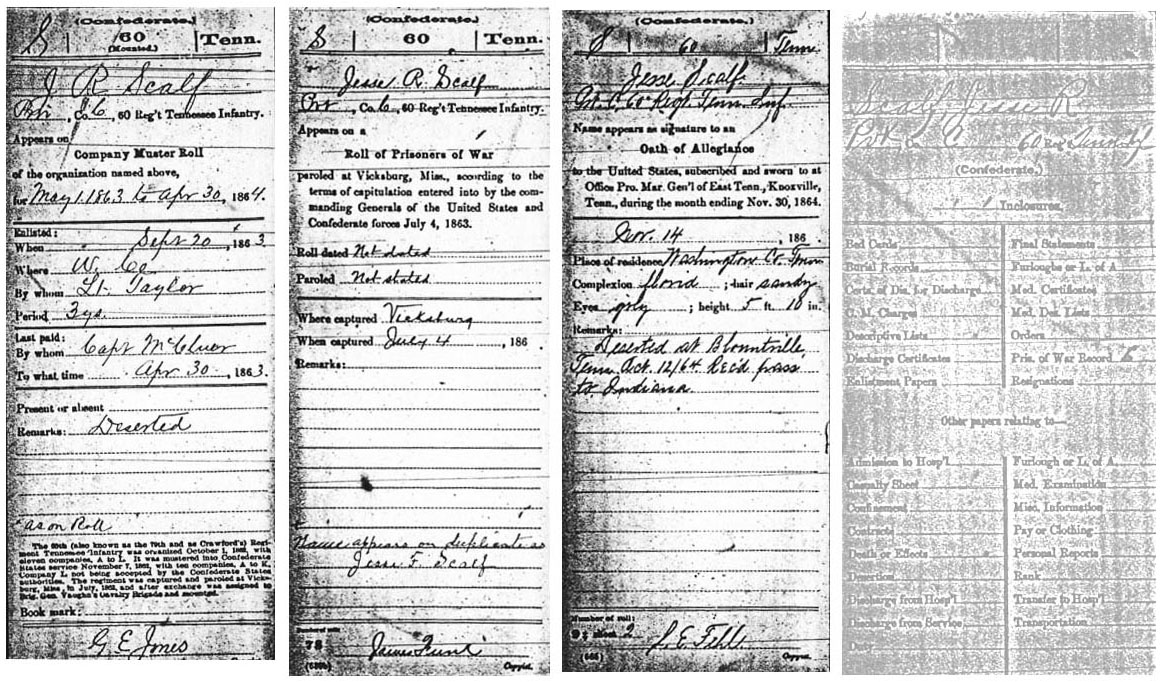 (Confederate.)
S | 60 (Mounted.) | Tenn.
J R Scalf
Pvt, Co. C, 60 Reg't Tennessee Infantry.
Appears on
Company Muster Roll
of the organization named above,
for May 1.1863 to Apr 30, 1864.
Enlisted:
When Sept 20, 1863.
Where W. Co
By whom Lt. Taylor
Period 3 ys
Last paid:
By whom Capt McClure
To what time Apr 30, 1863.
Present or absent
Remarks: Deserted
*as on Roll
The 60th (also known as the 79th and as Crawford's) Regiment Tennessee Infantry was organized October 1, 1862, with
eleven companies, A to L. It was mustered into Confederate
States service November 7, 1862, with ten companies, A to K,
Company L not being accepted by the Confederate States
authorities. The regiment was captured and paroled at Vicksburg, Miss., in July, 1863, and after exchange was assigned to
Brig. Gen. Vaughn's Cavalry Brigade and mounted.
Book mark:
G E Jones
(Confederate.)
S | 60 | Tenn.
Jesse R. Scalf
Pvt, Co. C, 60 Reg't Tennessee Infantry.
Appears on a
Roll of Prisoners of War
paroled at Vicksburg, Miss., according to the
terms of capitulation entered into by the commanding Generals of the United States and
Confederate forces July 4, 1863.
Roll dated Not dated
Paroled Not stated
Where captured Vicksburg
When captured July 4, 186
Remarks:
Name appears on duplicate as
Jesse F. Scalf
Number of roll:
78
James Funk
(639b) Copyist.
(Confederate.)
S | 60 | Tenn.
Jesse Scalf
Pvt. C 60 Regt Tenn. Inf
Name appears as signature to an
Oath of Allegiance
to the United States, subscribed and sworn to at
Office Pro. Mar. Gen'l of East Tenn., Knoxville,
Tenn., during the month ending Nov. 30, 1864.
Nov. 14, 186
Place of residence Washington Co. Tenn
Complexion florid; hair sandy
Eyes gray; height 5 ft. 10 in.
Remarks:
Deserted at Blountville,
Tenn Oct. 12/64 Rec'd pass
to Indiana
Number of roll:
sheet 2
Copyist.
Scalf, Jesse R
Pvt Co. C 60 Reg't
(Confederate.)
Inclosures.
Bed Cards
Burial Records
Certs. of Dis. for Discharge
C. M. Charges
Descriptive Lists
Discharge Certificates
Enlistment Papers
Final Statements
Furloughs or L. of A.
Med. Certificates
Med. Des. Lists
Orders
Pris. of War Record
Resignations
Other papers relating to—
Admission to Hosp'l
Casualty Sheet
Confinement
Discharge from Hosp'l
Discharge from Service
Furlough or L. of A.
Med. Examination
Misc. Information
Pay or Clothing
Personal Reports
Rank
Transfer to Hosp'l
Transportation